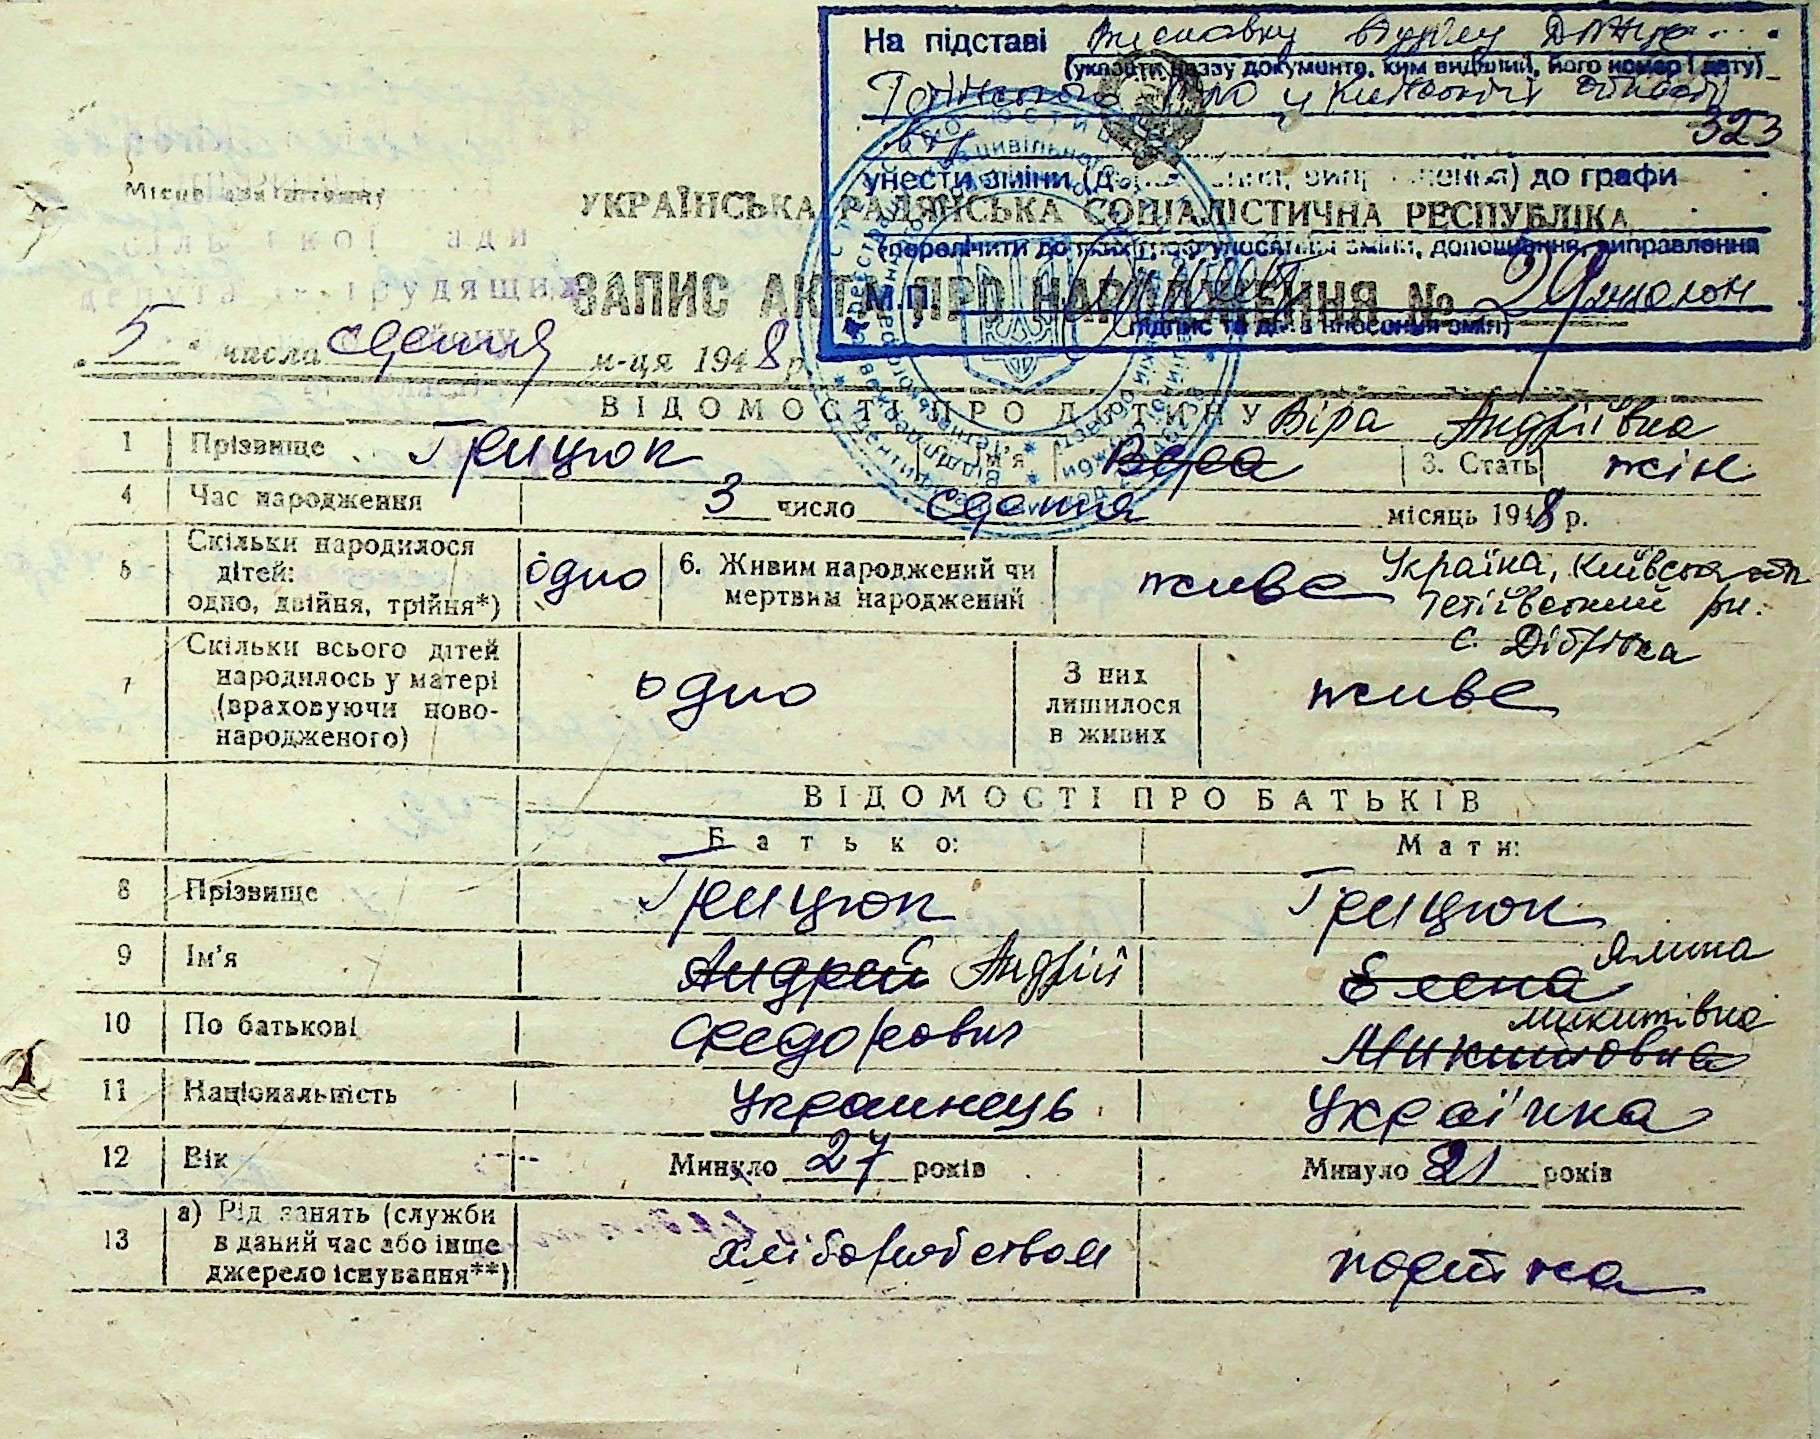 На підставі Висновку відділу ДРАЦС
(указати назву документа, ким виданий, його номер і дату)
у Київській області
323
унести зміни (доповнення, виправлення) до графи
Місце для штампу
УКРАЇНСЬКА РАДЯНСЬКА СОЦІАЛІСТИЧНА РЕСПУБЛІКА
(перелічити до яких граф унесення зміни, доповнення, виправлення
депутатів трудящих
ЗАПИС АКТА ПРО НАРОДЖЕННЯ №
М.П.
підпис та дата внесення змін)
„ 5 " числа сдення м-ця 1948 р.
ВІДОМОСТІ ПРО ДИТИНУ Віра Андріївна
1 Прізвище Грицюк Ім'я Вера 3. Стать жін
4 Час народження 3 число сдення місяць 1948 р.
5 Скільки народилося дітей: одно, двійня, трійня*) одно 6. Живим народжений чи мертвим народжений живе
Україна, Київська обл
Тетіївський рн.
с. Дібрівка
7 Скільки всього дітей народилось у матері (враховуючи новонародженого) одно З них лишилося в живих живе
ВІДОМОСТІ ПРО БАТЬКІВ
Батько: Мати:
8 Прізвище Грицюк Грицюк
9 Ім'я Андрей Андрій Елена Ялина
10 По батькові Федорович Микитовна Микитівна
11 Національність Украинець Украї́нка
12 Вік Минуло 27 років Минуло 21 років
13 а) Рід занять (служби в даний час або інше джерело існування**) хліборобством